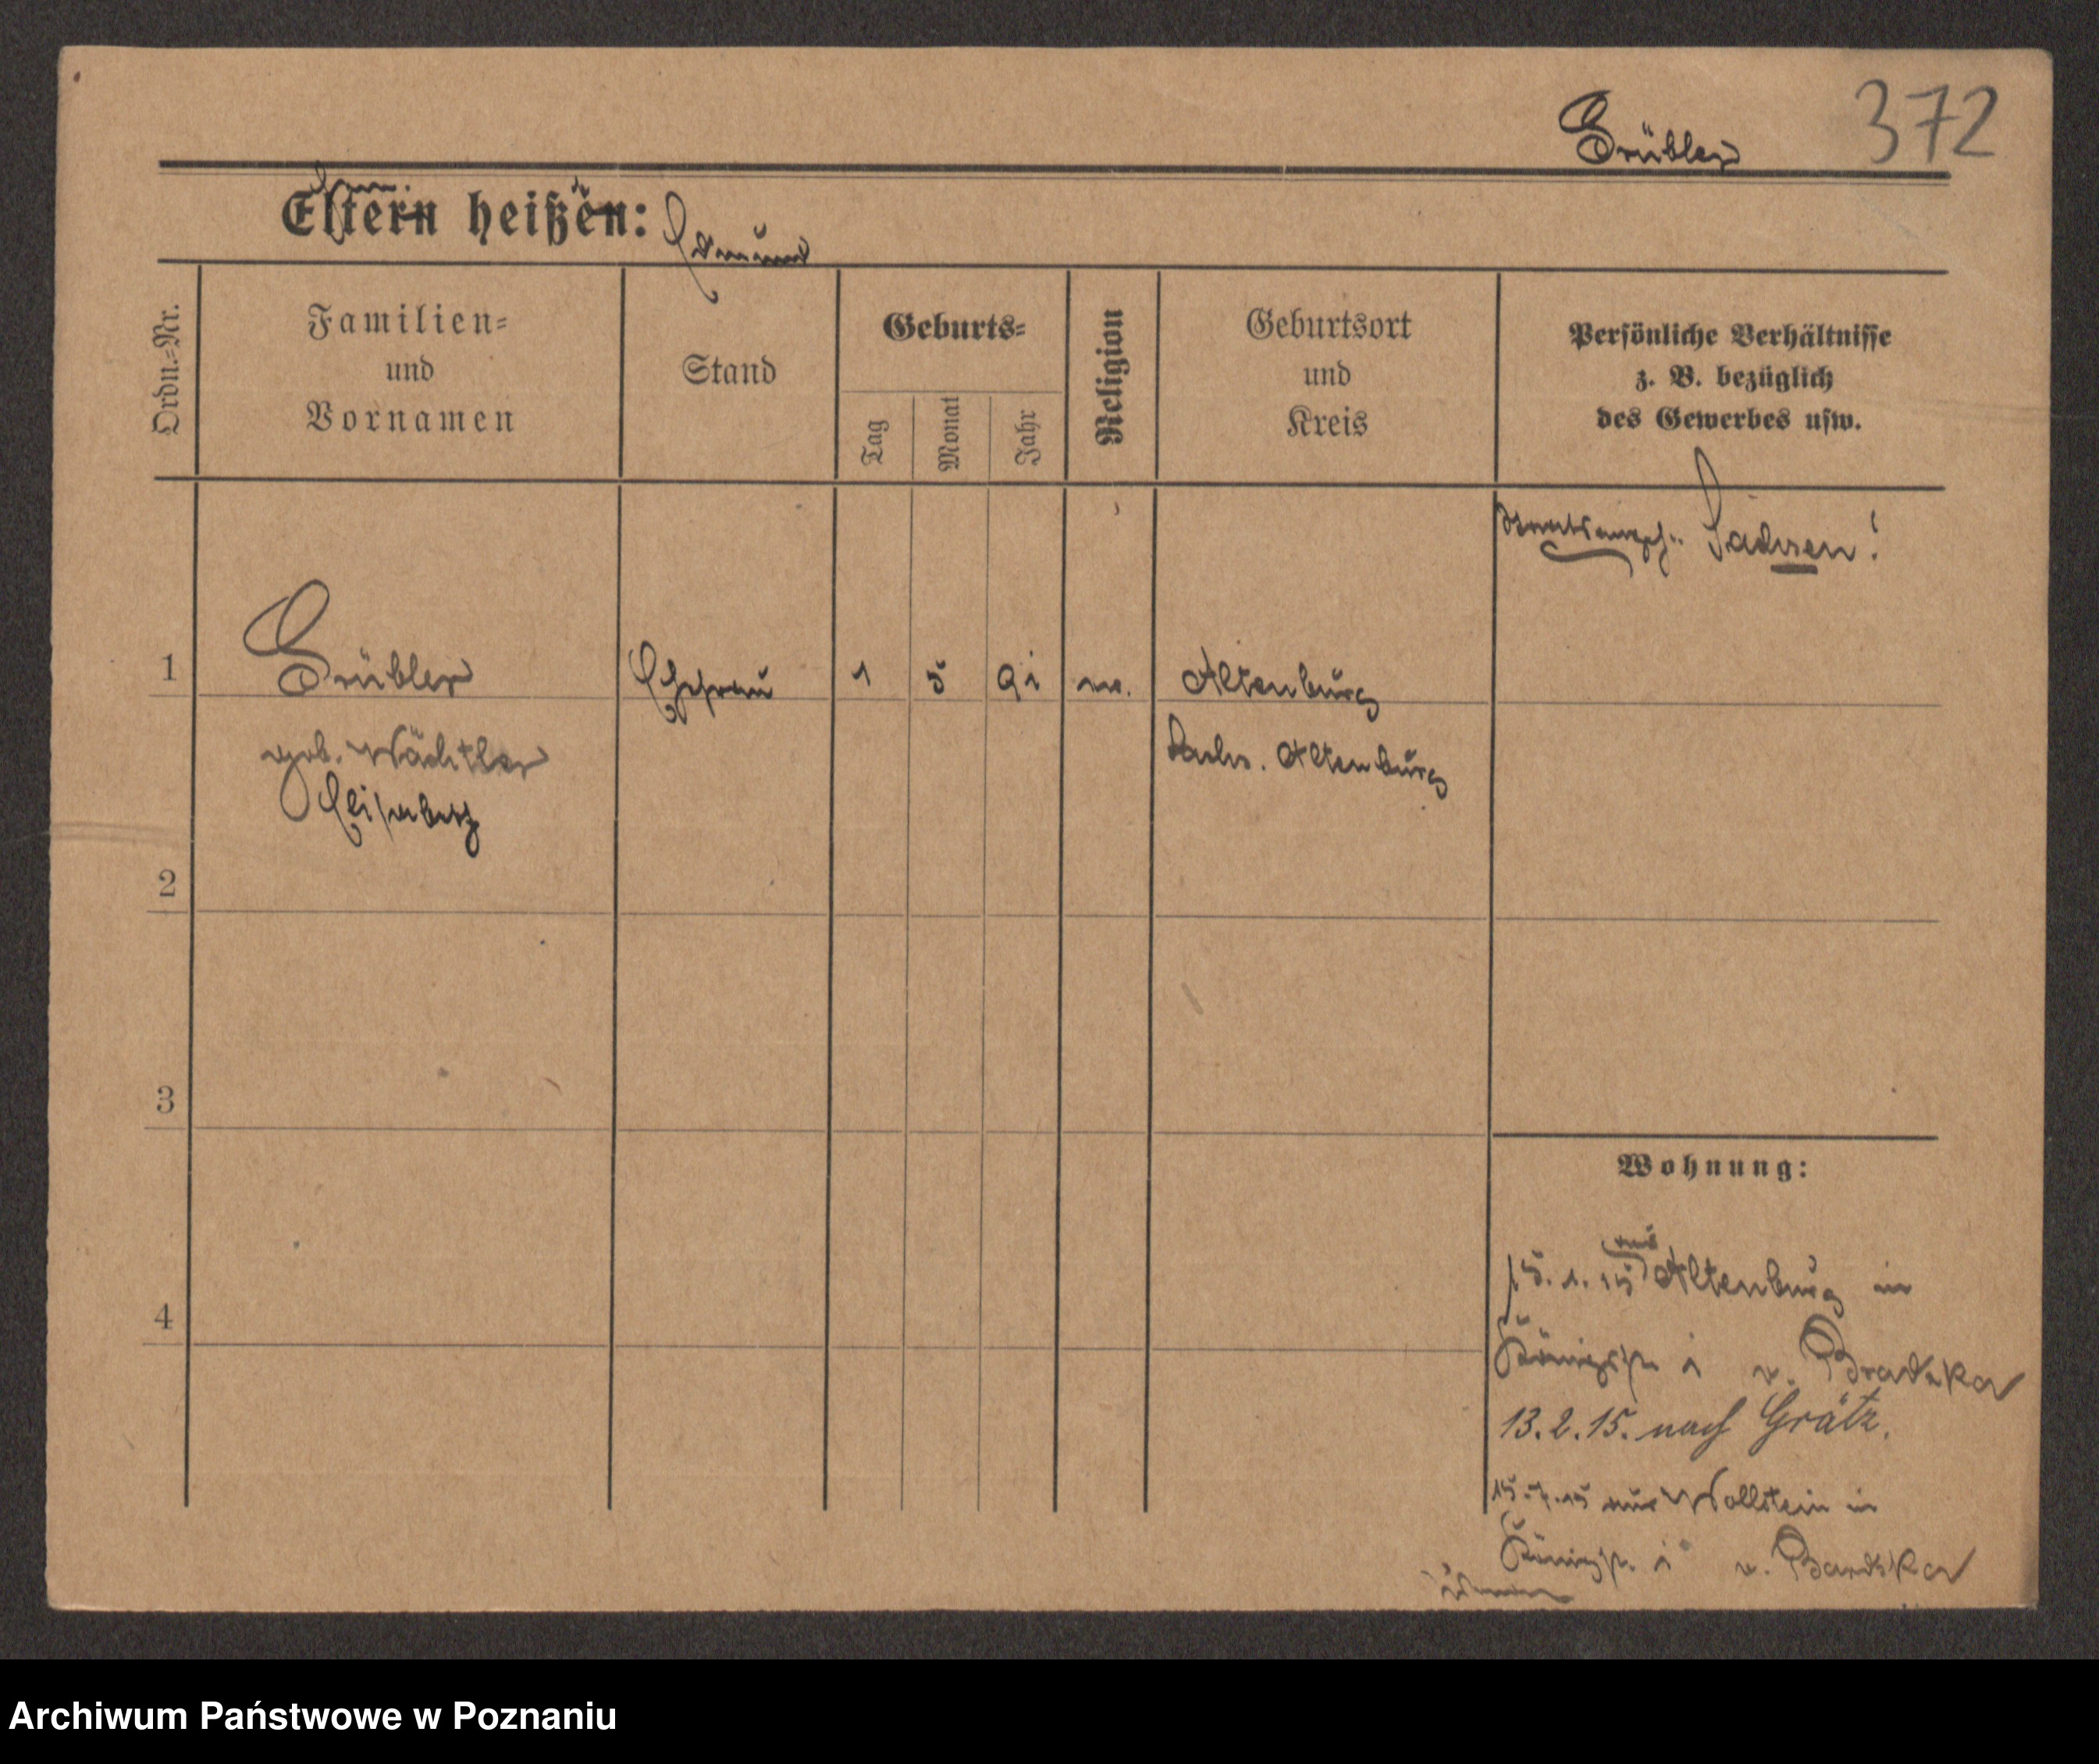 Grübler 372
Eltern heißen: Edmund
Ordn.-Nr.
Familien-
und
Vornamen
Stand
Geburts-
Tag
Monat
Jahr
Religion
Geburtsort
und
Kreis
Persönliche Verhältnisse
z. B. bezüglich
des Gewerbes usw.
Staatsangeh. Sachsen!
1 Grübler Ehefrau 1 5 91 Altenburg
geb. Wächtler Sachs. Altenburg
Elisabeth
2
3
4
Wohnung:
aus
15. 1. 15 Altenburg in
Königspl. v. Bradzka
13. 2. 15. nach Grätz.
15. 7. 15 aus Wollstein in
Königspl. v.
Archiwum Państwowe w Poznaniu